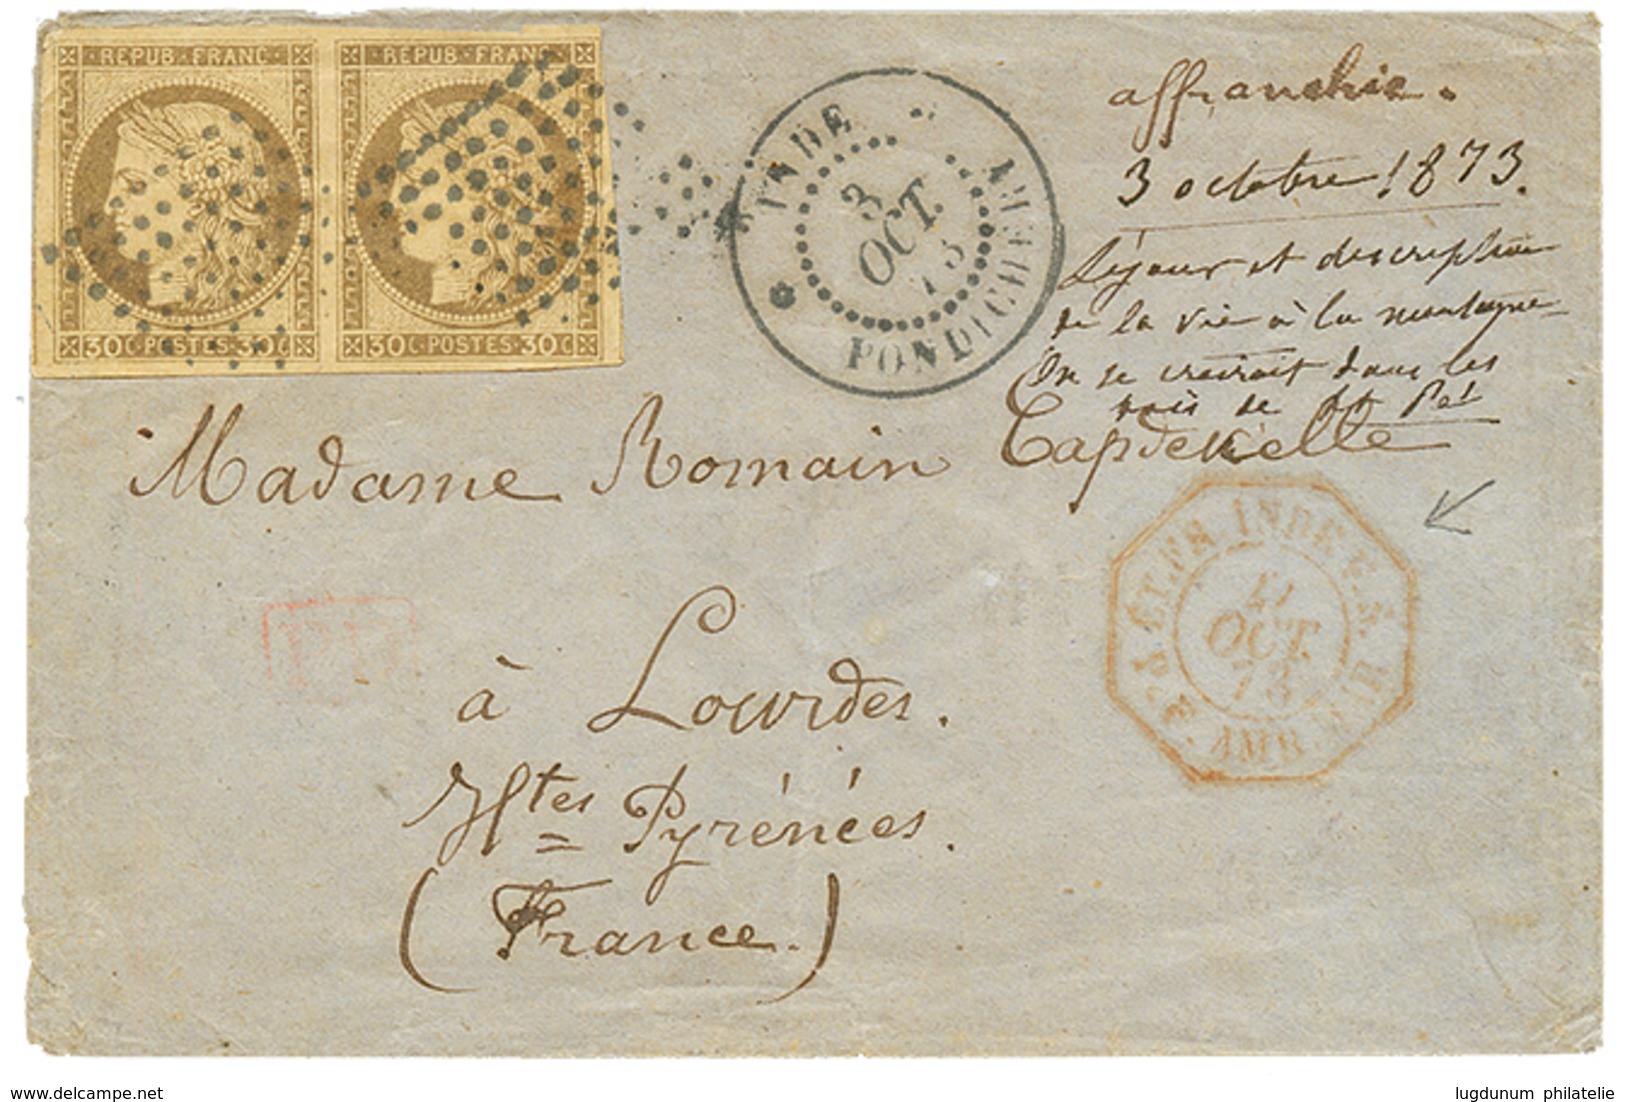 REPUB·FRANC·
30C·POSTES·30C
REPUB·FRANC·
30C·POSTES·30C
INDE PONDICHERY
3
OCT.
73
affranchie.
3 octobre 1873.
Séjour et description
de la vie à la montagne
On se croirait dans les
de St Pé
Madame Romain Capdevielle
PD
à Lourdes.
Htes Pyrénées.
(France.)
P. ET. FR. INDE P. F. AMB.
OCT.
73
delcampe.net
lugdunum philatelie